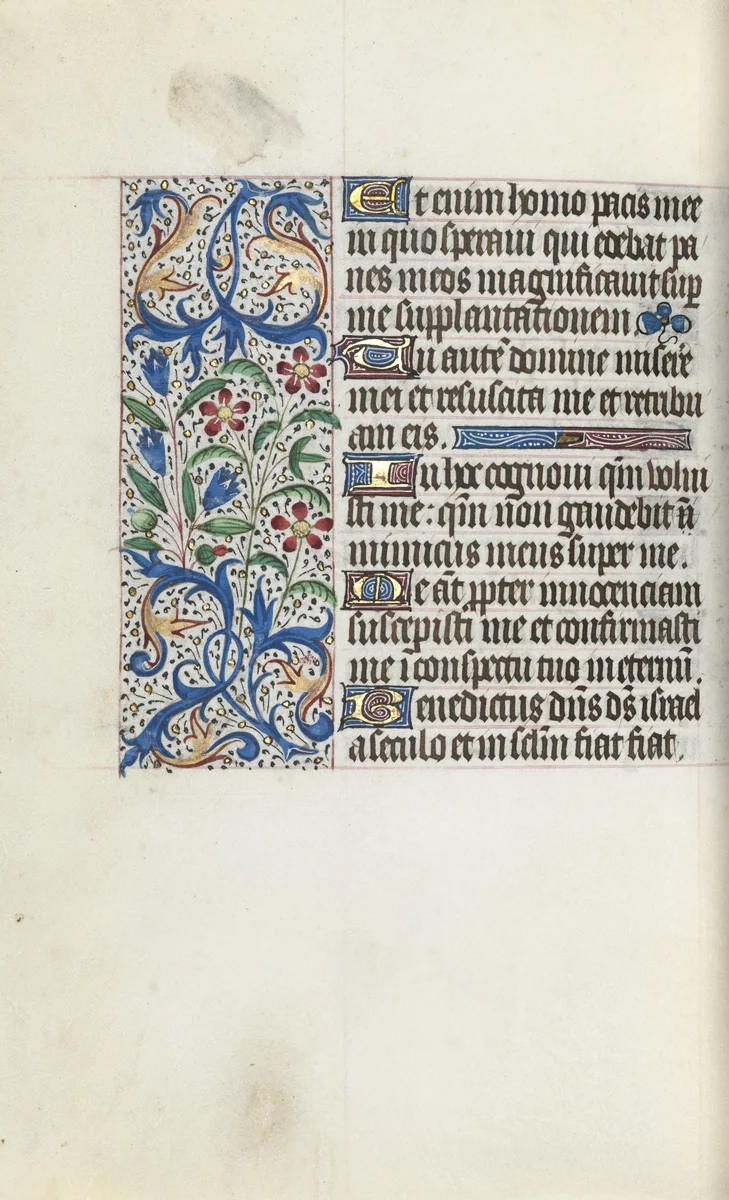 Et enim homo pacis mee
in quo speraui qui edebat pa
nes meos magnificauit sup̱
me supplantationem
Tu aute̅ domine misere
mei et resuscita me et retribu
am eis.
In hoc cognoui qm̅ volui
sti me: qm̅ non gaudebit a̅
inimicus meus super me.
Me au̅t pp̱ter innocenciam
suscepisti me et confirmasti
me i conspectu tuo in eternu̅.
Benedictus dn̅s ds̅ israel
a seculo et in sclm̅ fiat fiat.